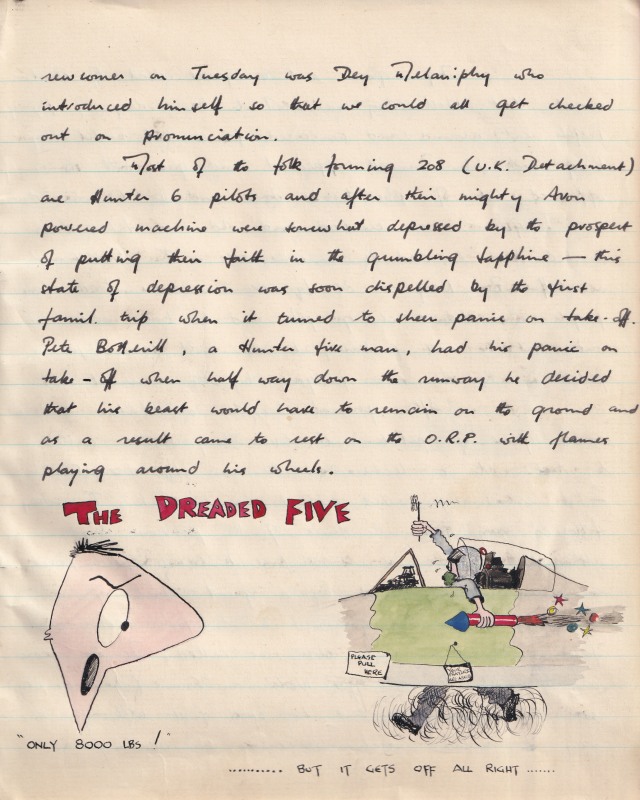 newcomer on Tuesday was Dey Melaniphy who
introduced himself so that we could all get checked
out on pronunciation.
Most of the folk forming 208 (U.K. Detachment)
are Hunter 6 pilots and after their mighty Avon
powered machine were somewhat depressed by the prospect
of putting their faith in the grumbling Sapphire — this
state of depression was soon dispelled by the first
famil. trip when it turned to sheer panic on take-off.
Pete Botterill, a Hunter five man, had his panic on
take-off when half way down the runway he decided
that his beast would have to remain on the ground and
as a result came to rest on the O.R.P. with flames
playing around his wheels.
THE DREADED FIVE
PLEASE
PULL
HERE
"ONLY 8000 LBS!"
........... BUT IT GETS OFF ALL RIGHT .......